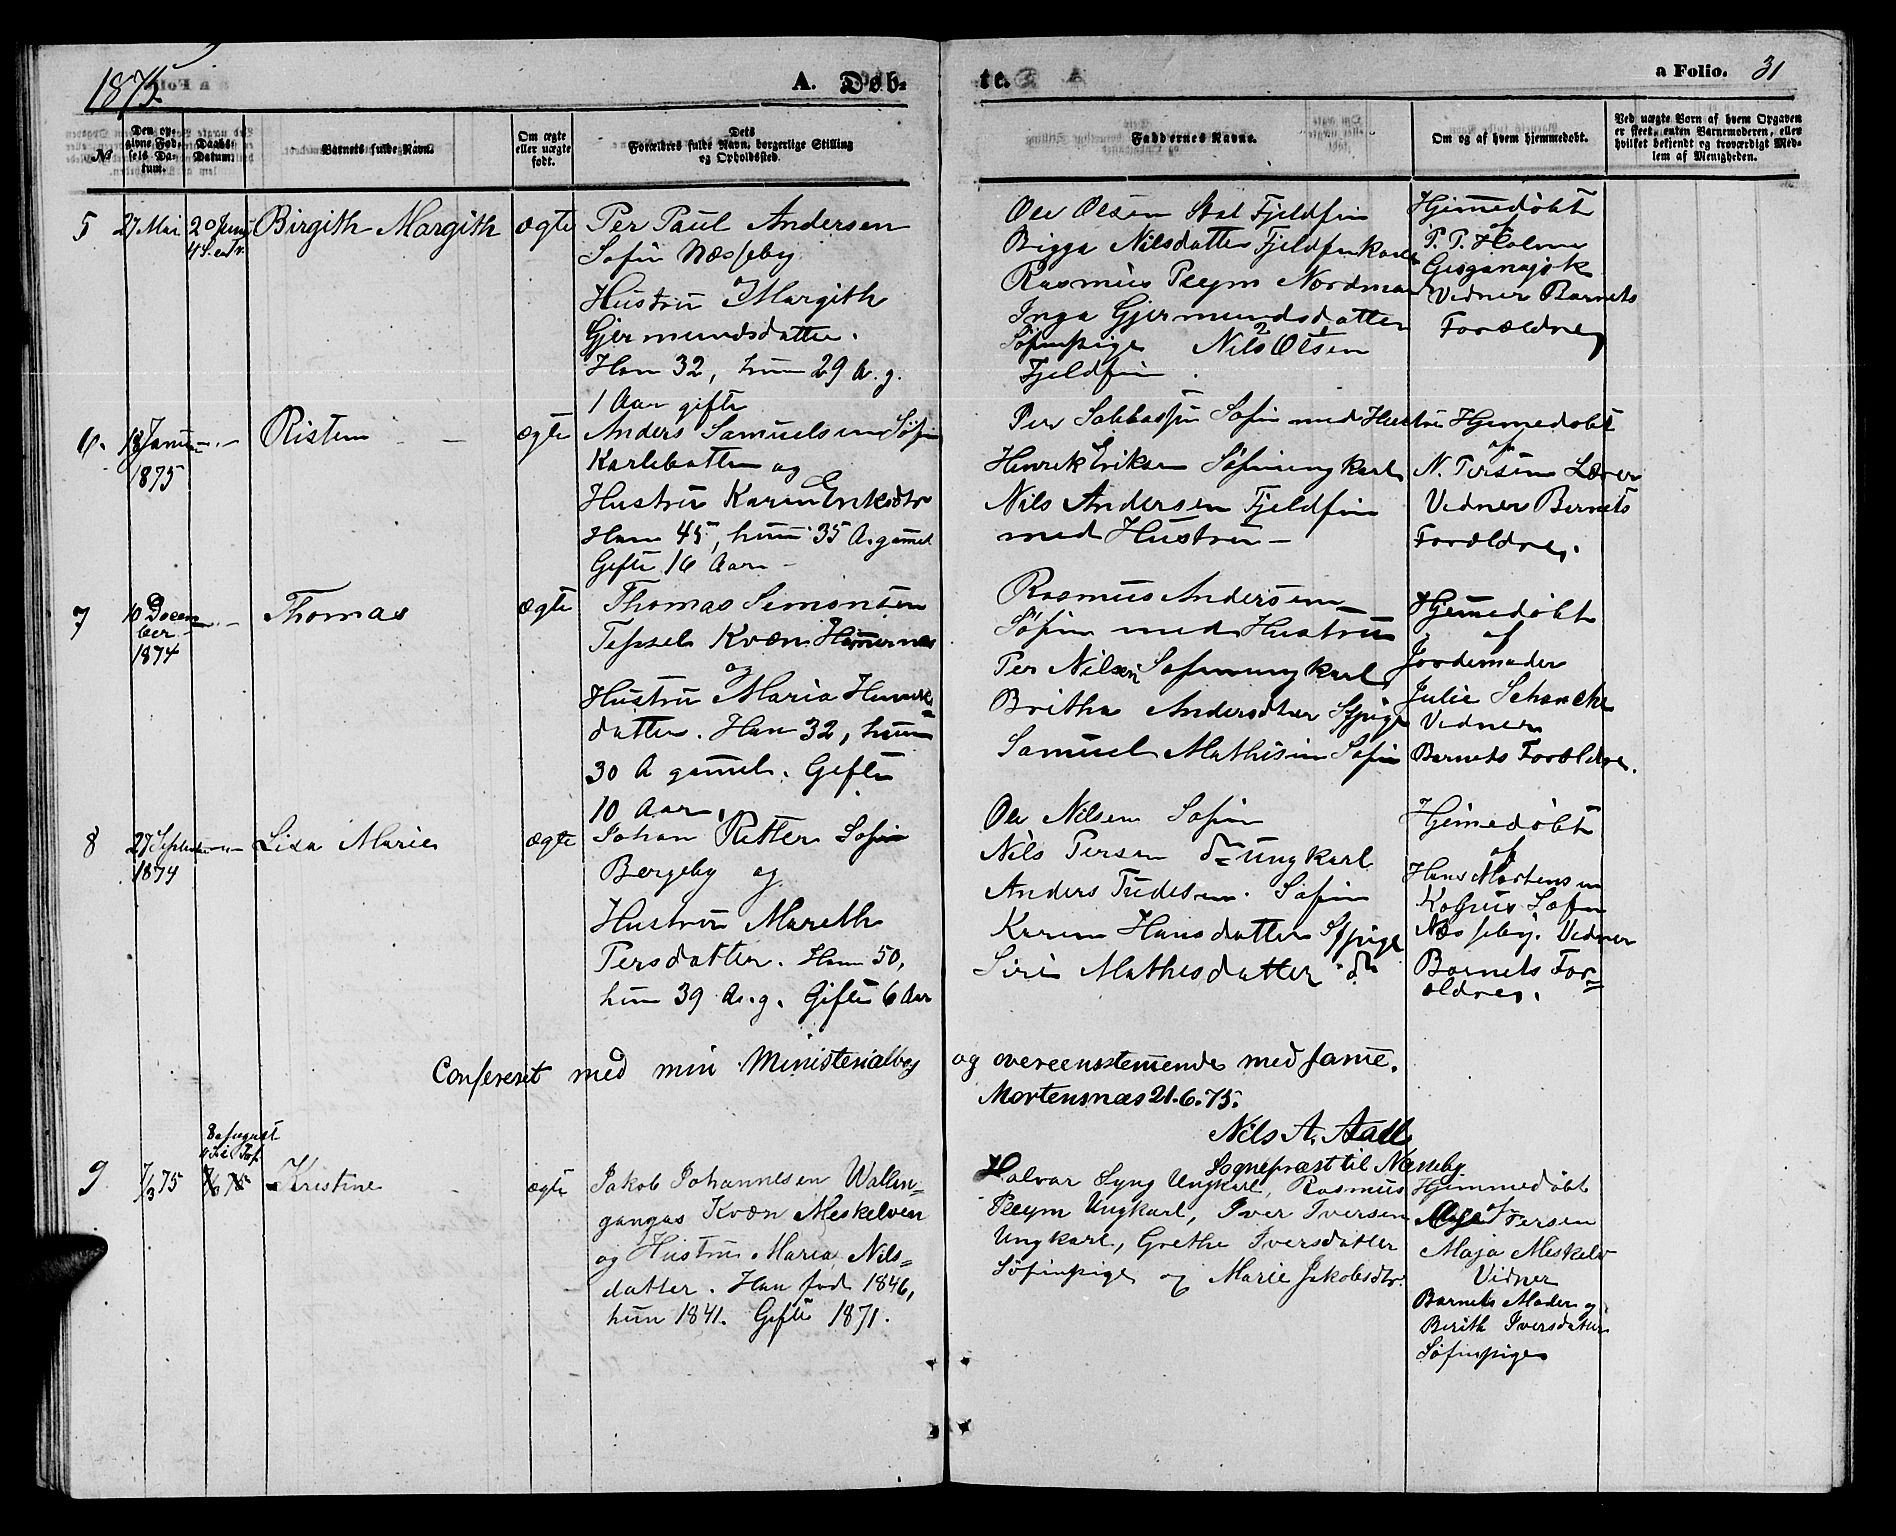 1875.
A. Døb-
te.
a Folio. 31
No
Den op-
givne Fød-
sels Da-
tum.
Daabs-
Datum.
Barnets fulde Navn.
Om ægte
eller uægte
født.
Dets
Forældres fulde Navn, borgerlige Stilling
og Opholdssted.
Faddernes Navne.
Om og af hvem hjemmedøbt.
Ved uægte Børn af hvem Opgaven
er skeet, enten Barnemoderen, eller
hvilket bekjendt og troværdigt Med-
lem af Menigheden.
5
27 Mai
20 Juni
4 S. e. Tr.
Birgith Margith
ægte
Per Paul Andersen
Søfin Næsseby
og
Hustru Margith
Gjermundsdatter.
Han 32, hun 29 A. g.
1 Aar gifte
Ole Olsen Stal Fjeldfin
Bigga Nilsdatter Fjeldfinkone
Rasmus Pleym Nordmand
Inga Gjermundsdatter
Søfinpige Nils Olsen
Fjeldfin.
Hjemmedøbt
af
P. P. Holm
Vidner Barnets
Forældre
6.
18 Januar
1875
Risten
ægte
Anders Samuelsen Søfin
Karlebotten og
Hustru Karen Eriksdtr
Han 45, hun 35 A. gammel
Gifte 16 Aar
Per Søfin med Hustru
Henrik Eriksen Søfinungkarl
Nils Andersen Fjeldfin
med Hustru
Hjemmedøbt
af
N. Persen Lærer
Vidner Barnets
Forældre.
7
10 Decem
ber
1874
Thomas
ægte
Thomas Simonsen
Kvæn
og
Hustru Maria Henrik
datter. Han 32, hun
30 A gammel. Gifte
10 Aar.
Rasmus Andersen
Søfin med Hustru
Per Nilsen Søfinungkarl
Britha Andersdtter Sfpige
Samuel Mathisen Søfin
Hjemmedøbt
af
Jordemoder
Julie Schanche
Vidner
Barnets Forældre.
8
27 September
1874
Lisa Marie
ægte
Johan Ritter Søfin
Bergeby og
Hustru Mareth
Persdatter. Han 50,
hun 39 A. g. Gifte 6 Aar
Ole Nilsen Søfin
Nils Persen do Ungkarl
Anders Søfin
Karen Hansdatter Sfpige
Siri Mathisdatter do
Hjemmedøbt
af
Hans Mortensen
Søfin
Næsseby. Vidner
Barnets For-
ældre.
Confereret med min Ministerialbog og overeensstemmende med samme.
Mortensnæs 21.6.75.
Nils A. Aall
Sognepræst til Næsseby.
9
7/3 75
8 August
Kristine
ægte
Jakob Johannesen
Kvæn Meskelven
og Hustru Maria Nils-
datter. Han født 1846,
hun 1841. Gifte 1871.
Halvar Lyng Ungkarl, Rasmus
Pleym Ungkarl, Iver Iversen
Ungkarl, Grethe Iversdatter
Søfinpige og Marie Jakobsdtr.
Hjemmedøbt
af
Persen
Maja Meskelv
Vidner
Barnets Moder og
Berith Iversdatter
Søfinpige